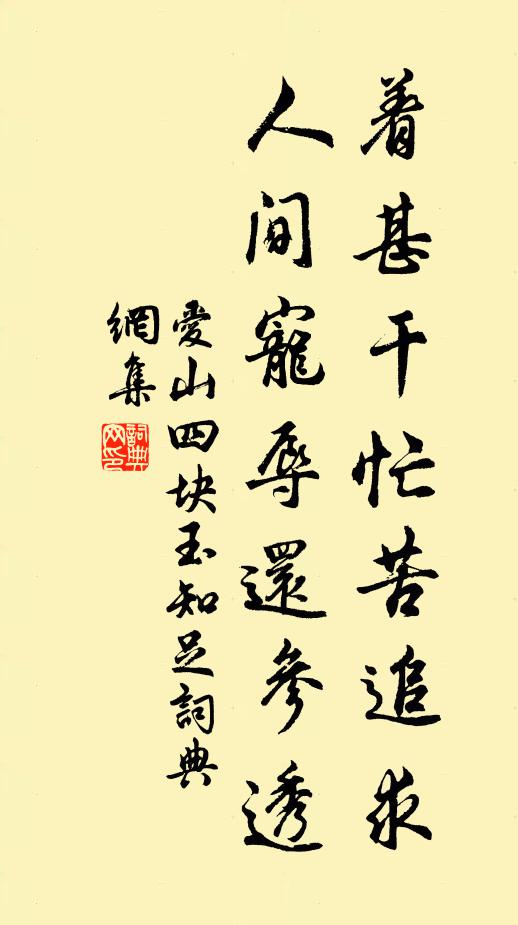 着甚干忙苦追求
人间寵辱還參透
愛山四块玉知足詞典
網集
詞典网印